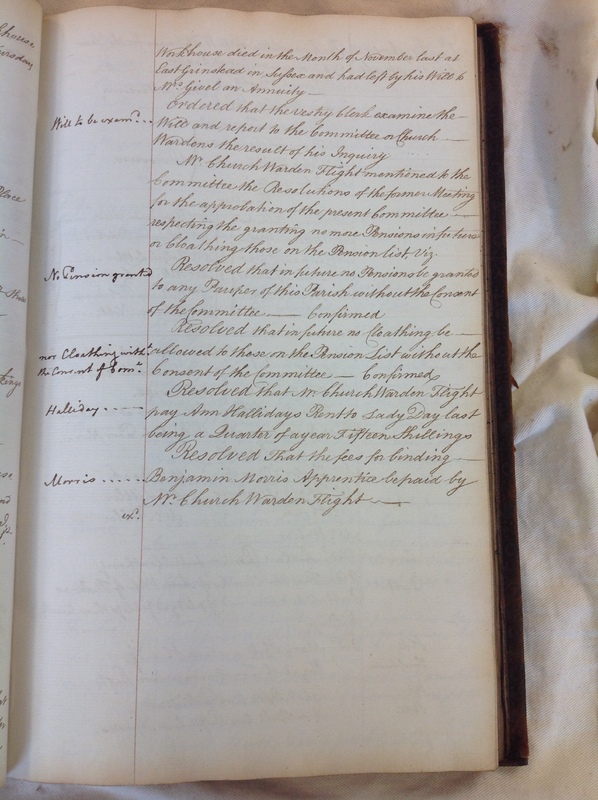 Workhouse died in the Month of November last at
East Grinstead in Sussex and had left by his Will to
Mrs. Givel an Annuity —
Ordered that the vestry Clerk examine the —
Will to be examd. . . Will and report to the Committee or Church —
Wardens the result of his Inquiry
Mr. Church Warden Flight mentioned to the
Committee the Resolutions of the former Meeting
for the approbation of the present Committee —
respecting the granting no more Pensions in future
or Cloathing those on the Pension List Viz.
No Pension granted Resolved that in future no Pensions be granted
to any Pauper of this Parish without the Consent
of the Committee — Confirmed
Resolved that in future no Cloathing be —
nor Cloathing witht. allowed to those on the Pension List without the
the Consent of Comee. Consent of the Committee — Confirmed
Resolved that Mr. Church Warden Flight
Halliday - - - - pay Ann Hallidays Rent to Lady Day last
being a Quarter of a year Fifteen Shillings
Resolved That the fees for binding —
Morris . . . . . Benjamin Morris Apprentice be paid by
Mr. Church Warden Flight —
exd.